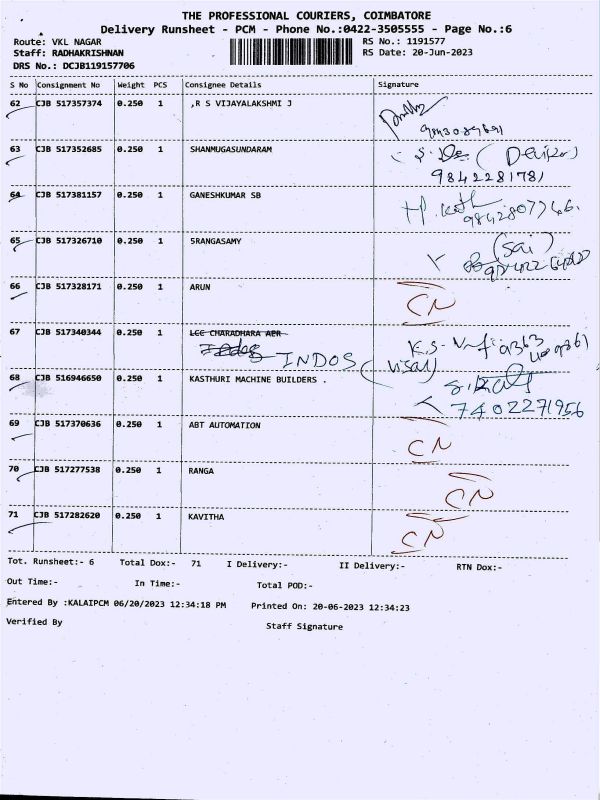 THE PROFESSIONAL COURIERS, COIMBATORE
Delivery Runsheet - PCM - Phone No.:0422-3505555 - Page No.:6
Route: VKL NAGAR
RS No.: 1191577
Staff: RADHAKRISHNAN
RS Date: 20-Jun-2023
DRS No.: DCJB119157706
S No Consignment No Weight PCS Consignee Details Signature
62 CJB 517357374 0.250 1 ,R S VIJAYALAKSHMI J
63 CJB 517352685 0.250 1 SHANMUGASUNDARAM
9842281781
64 CJB 517381157 0.250 1 GANESHKUMAR SB
65 CJB 517326710 0.250 1 5RANGASAMY (Sai)
66 CJB 517328171 0.250 1 ARUN CN
67 CJB 517340344 0.250 1 LCC CHARADHARA AER
INDOS
68 CJB 516946650 0.250 1 KASTHURI MACHINE BUILDERS .
7402271956
69 CJB 517370636 0.250 1 ABT AUTOMATION CN
70 CJB 517277538 0.250 1 RANGA CN
71 CJB 517282620 0.250 1 KAVITHA CN
Tot. Runsheet:- 6 Total Dox:- 71 I Delivery:- II Delivery:- RTN Dox:-
Out Time:- In Time:- Total POD:-
Entered By :KALAIPCM 06/20/2023 12:34:18 PM Printed On: 20-06-2023 12:34:23
Verified By Staff Signature